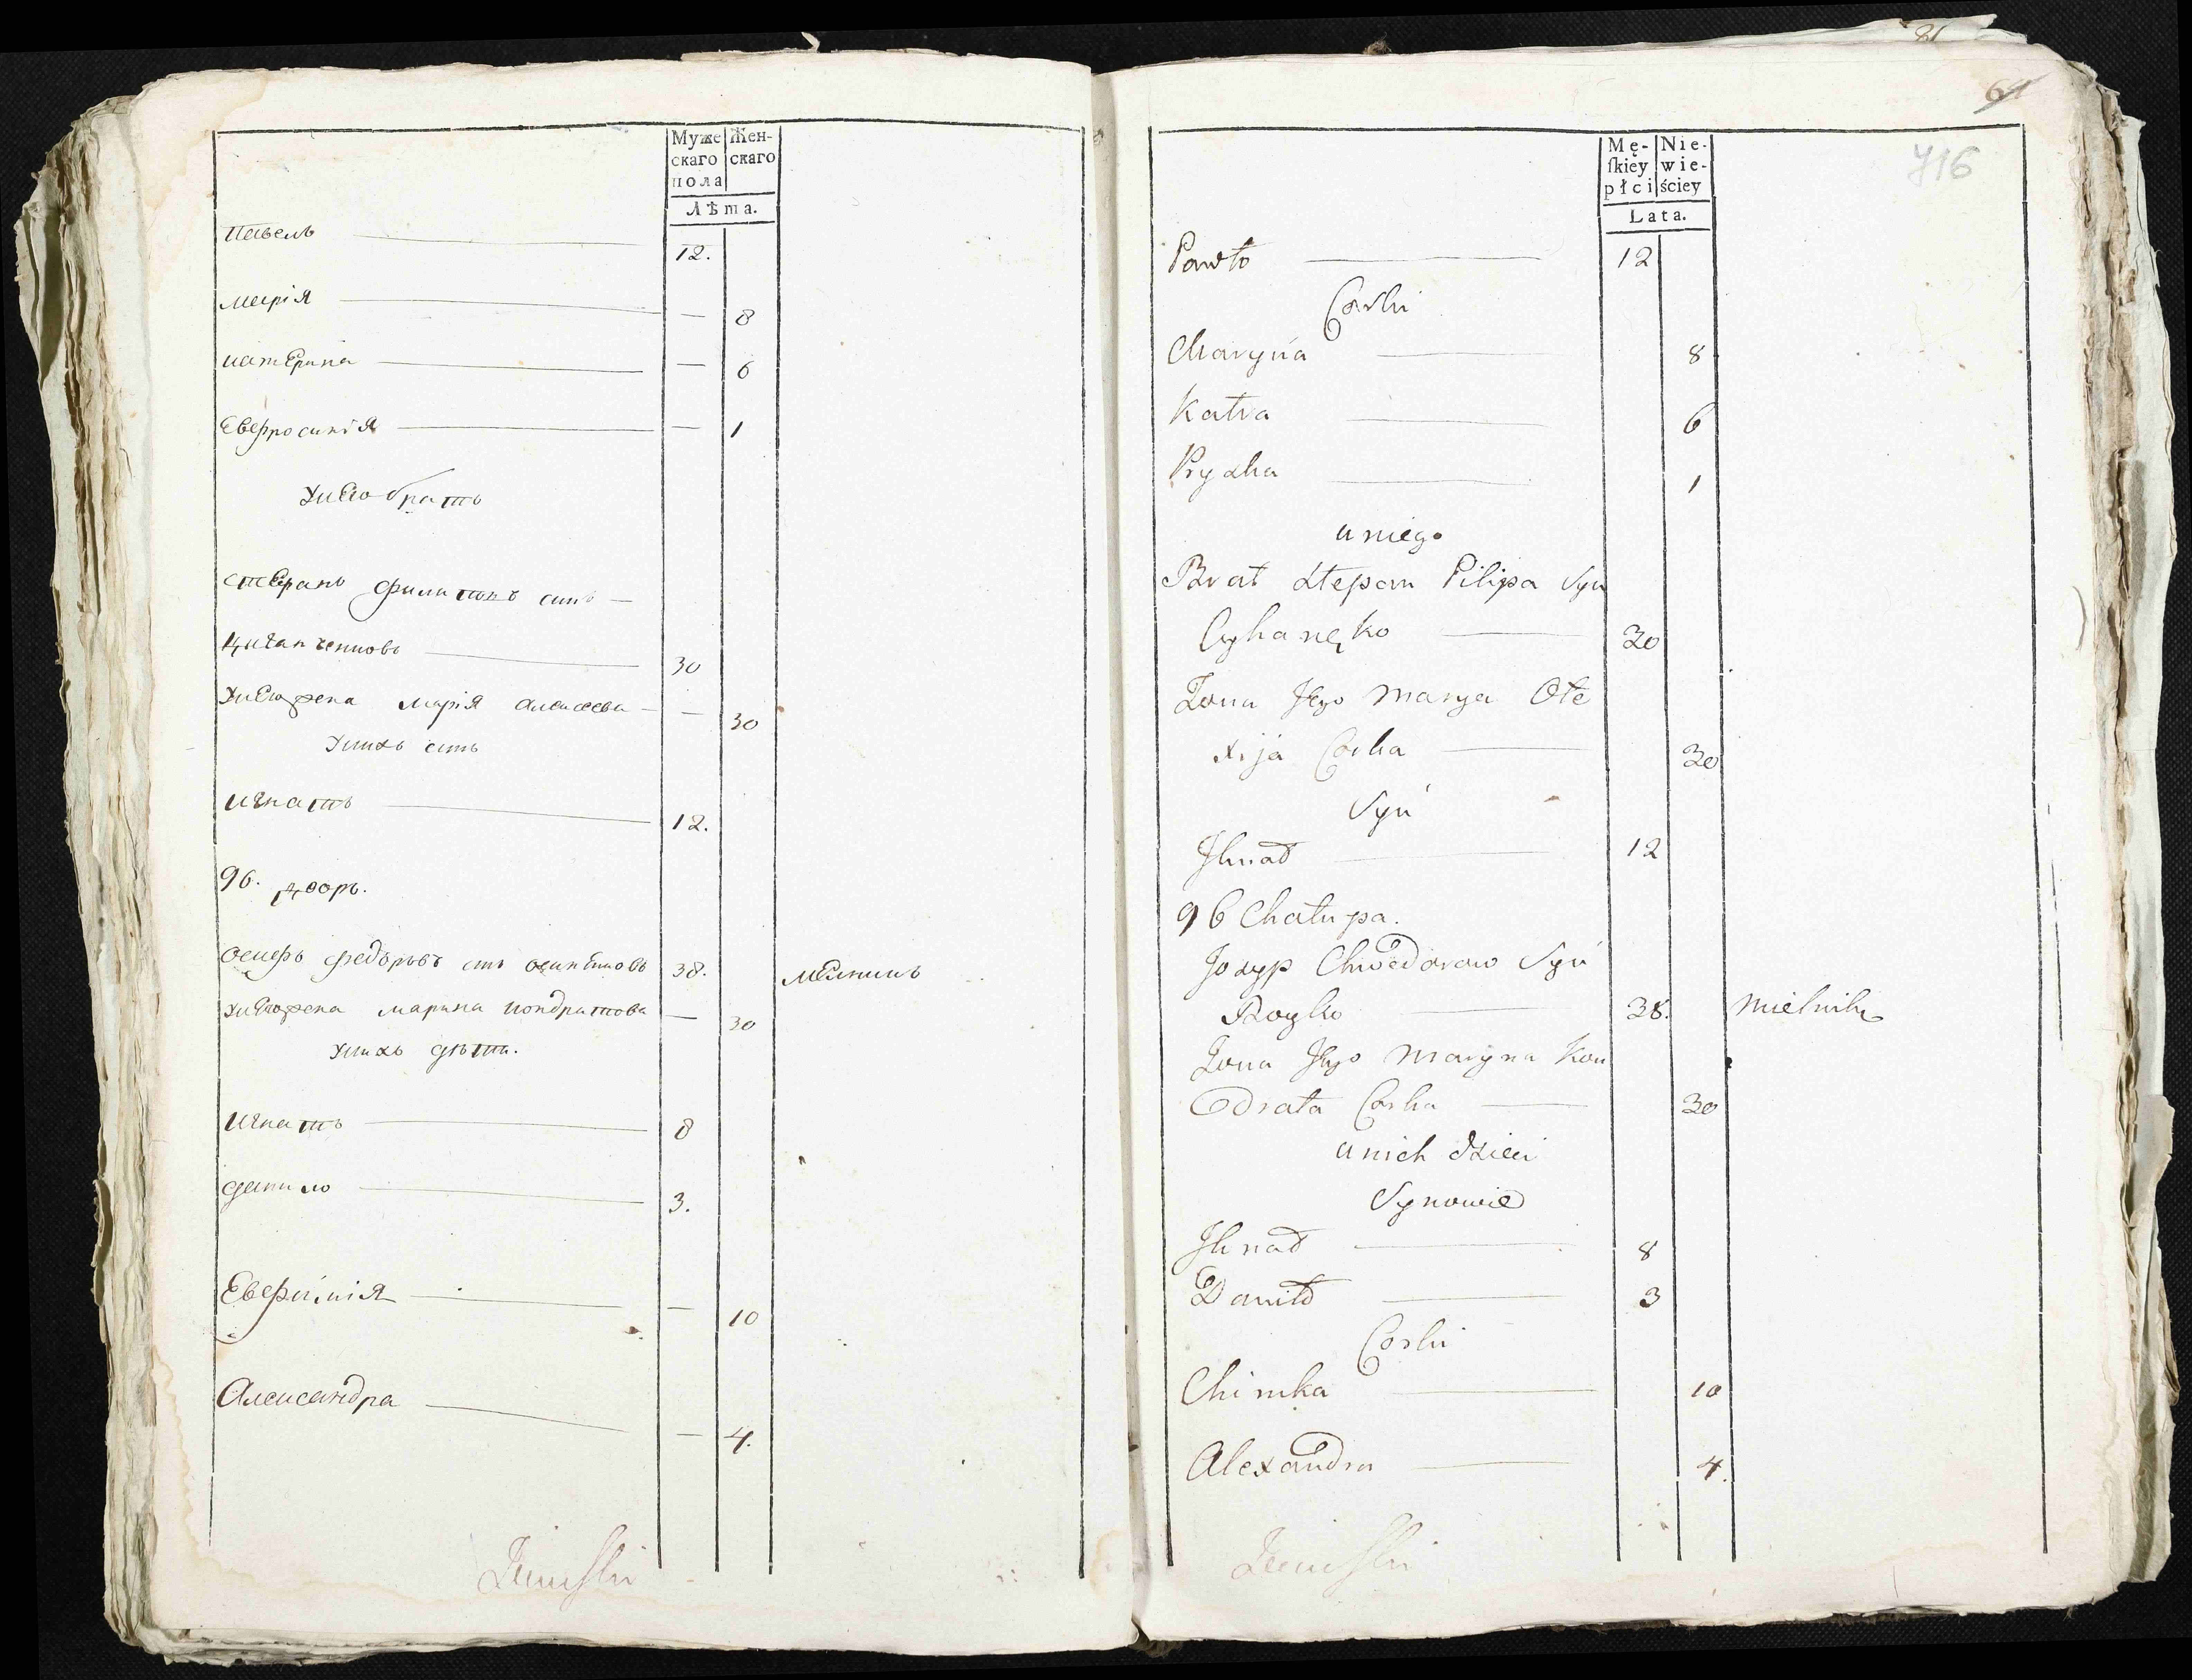 Муже
скаго
пола
Жен-
скаго
Лѣта.
Павелъ 12.
Марія — 8
Катерина — 6
Евфросинія — 1
У него братъ
Стефанъ Филиповъ сынъ
Циганченковъ 30
У него жена Марія Алексеева — 30
У нихъ сынъ
Игнатъ 12.
96. дворъ.
Осипъ Федоровъ сынъ 38. мелникъ
У него жена Марина Кондратова — 30
У нихъ дѣти.
Игнатъ 8
Данило 3.
Евфимія — 10
Александра — 4.
81
61
716
Mę-
ſkiey
płci
Nie-
wie-
ściey
Lata.
Pawło 12
Corki
Maryna 8
Katra 6
Pryzka 1
u niego
Brat Stepan Pilipa Syn
Cyhanenko 30
Żona Jego Marya Ole
xija Corka 30
Syn
Jhnat 12
96 Chałupa.
Jozyp Chwedorow Syn
38. Mielnik
Żona Jego Maryna Kon
drata Corka 30
u nich dzieci
Synowie
Jhnat 8
Daniło 3
Corki
Chimka 10
Alexandra 4.